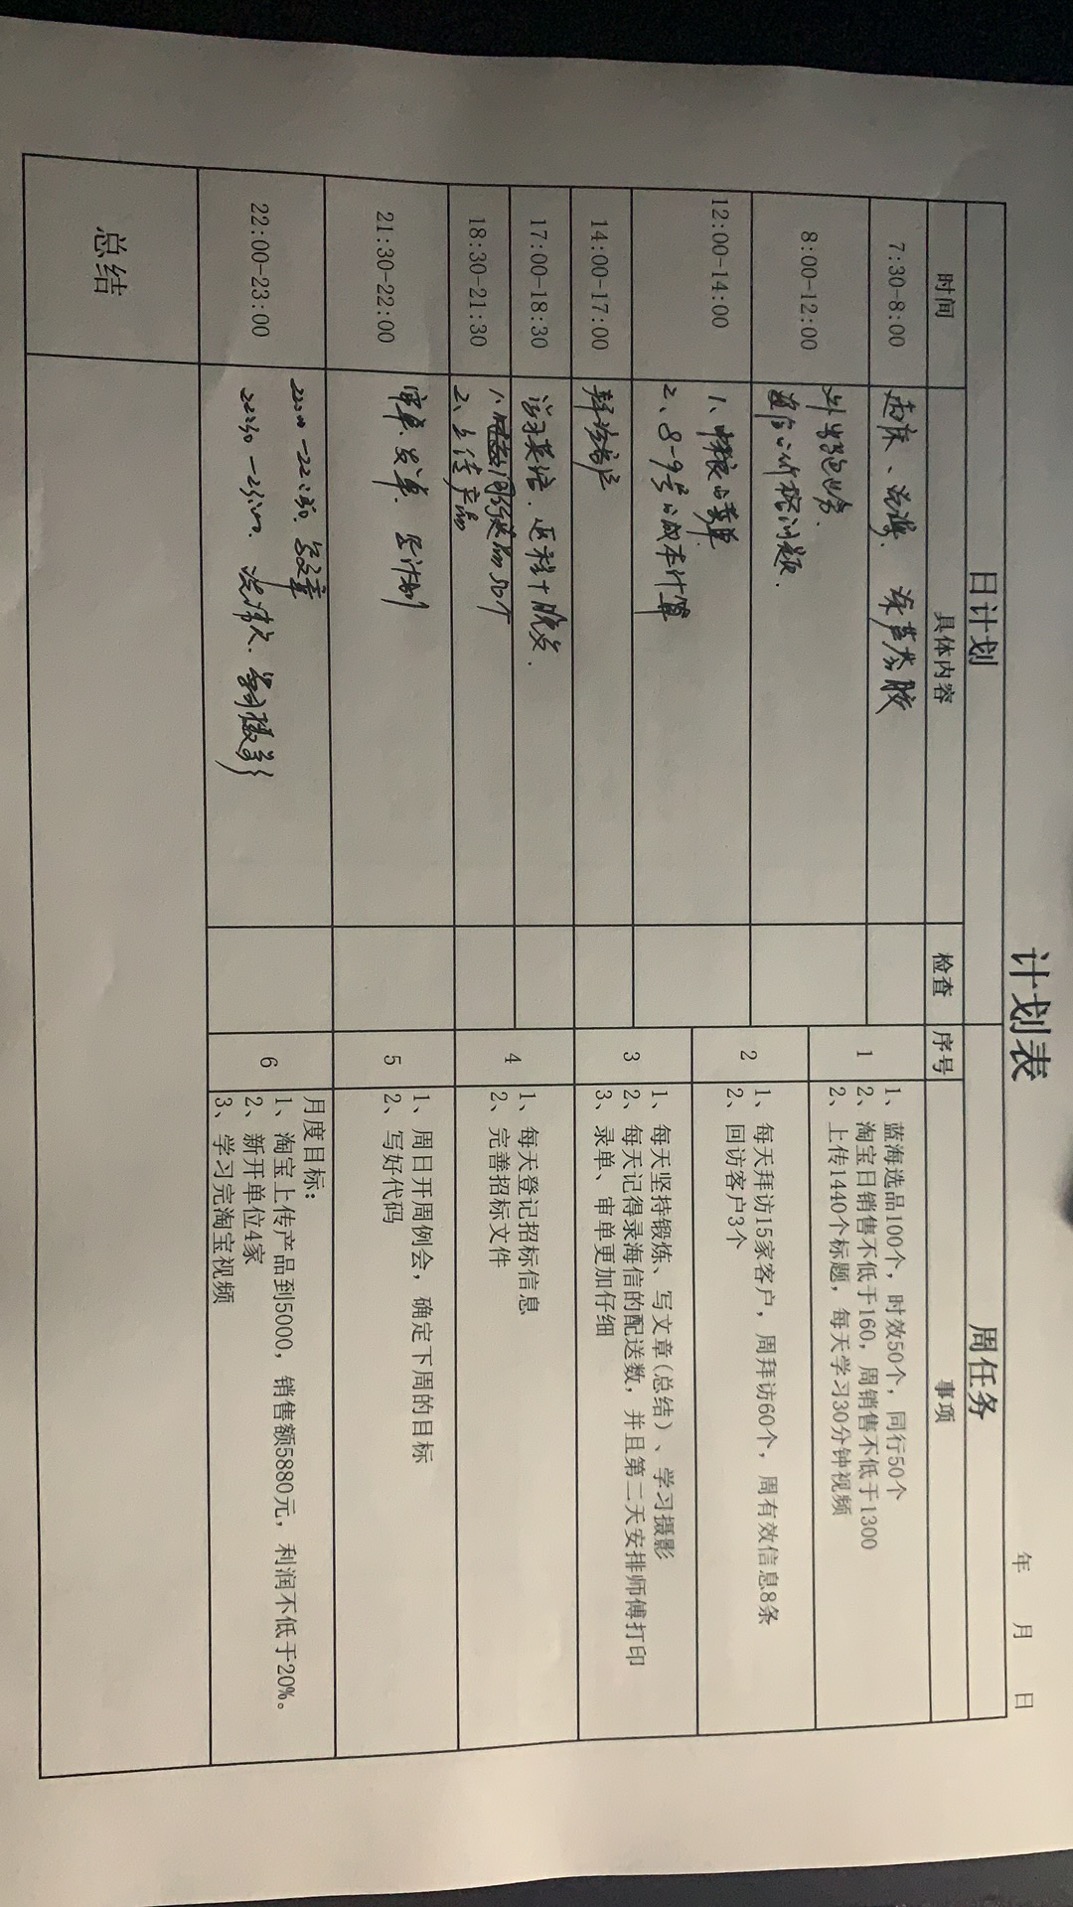 计划表
年 月 日
日计划
周任务
时间 具体内容 检查 序号 事项
7:30-8:00 起床、洗漱、 涂芦荟胶
8:00-12:00 外出跑业务.
价格问题.
12:00-14:00 1、
2、8-9号成本计算
14:00-17:00 拜访客户
17:00-18:30 学习英语. 返程+晚餐.
18:30-21:30 1、
2、上传产品
21:30-22:00 审单、发单. 写计划
22:00-23:00 22:00-22:30. 写文章
22:30-23:00. 洗漱、学习摄影
总结
1
1、蓝海选品100个，时效50个，同行50个
2、淘宝日销售不低于160，周销售不低于1300
2、上传1440个标题，每天学习30分钟视频
2
1、每天拜访15家客户，周拜访60个，周有效信息8条
2、回访客户3个
3
1、每天坚持锻炼、写文章(总结)、学习摄影
2、每天记得录海信的配送数，并且第二天安排师傅打印
3、录单、审单更加仔细
4
1、每天登记招标信息
2、完善招标文件
5
1、周日开周例会，确定下周的目标
2、写好代码
6
月度目标：
1、淘宝上传产品到5000，销售额5880元，利润不低于20%。
2、新开单位4家
3、学习完淘宝视频